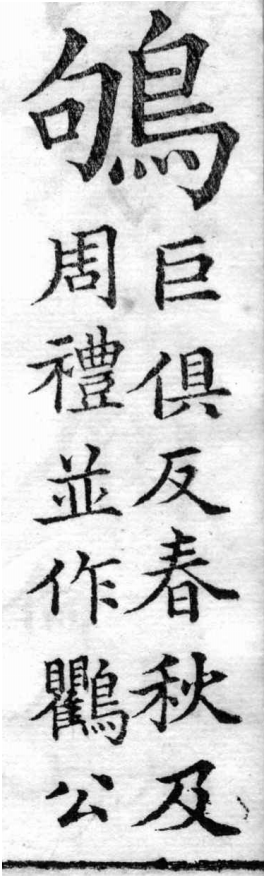 鴝
巨俱反春秋及
周禮並作鸜公